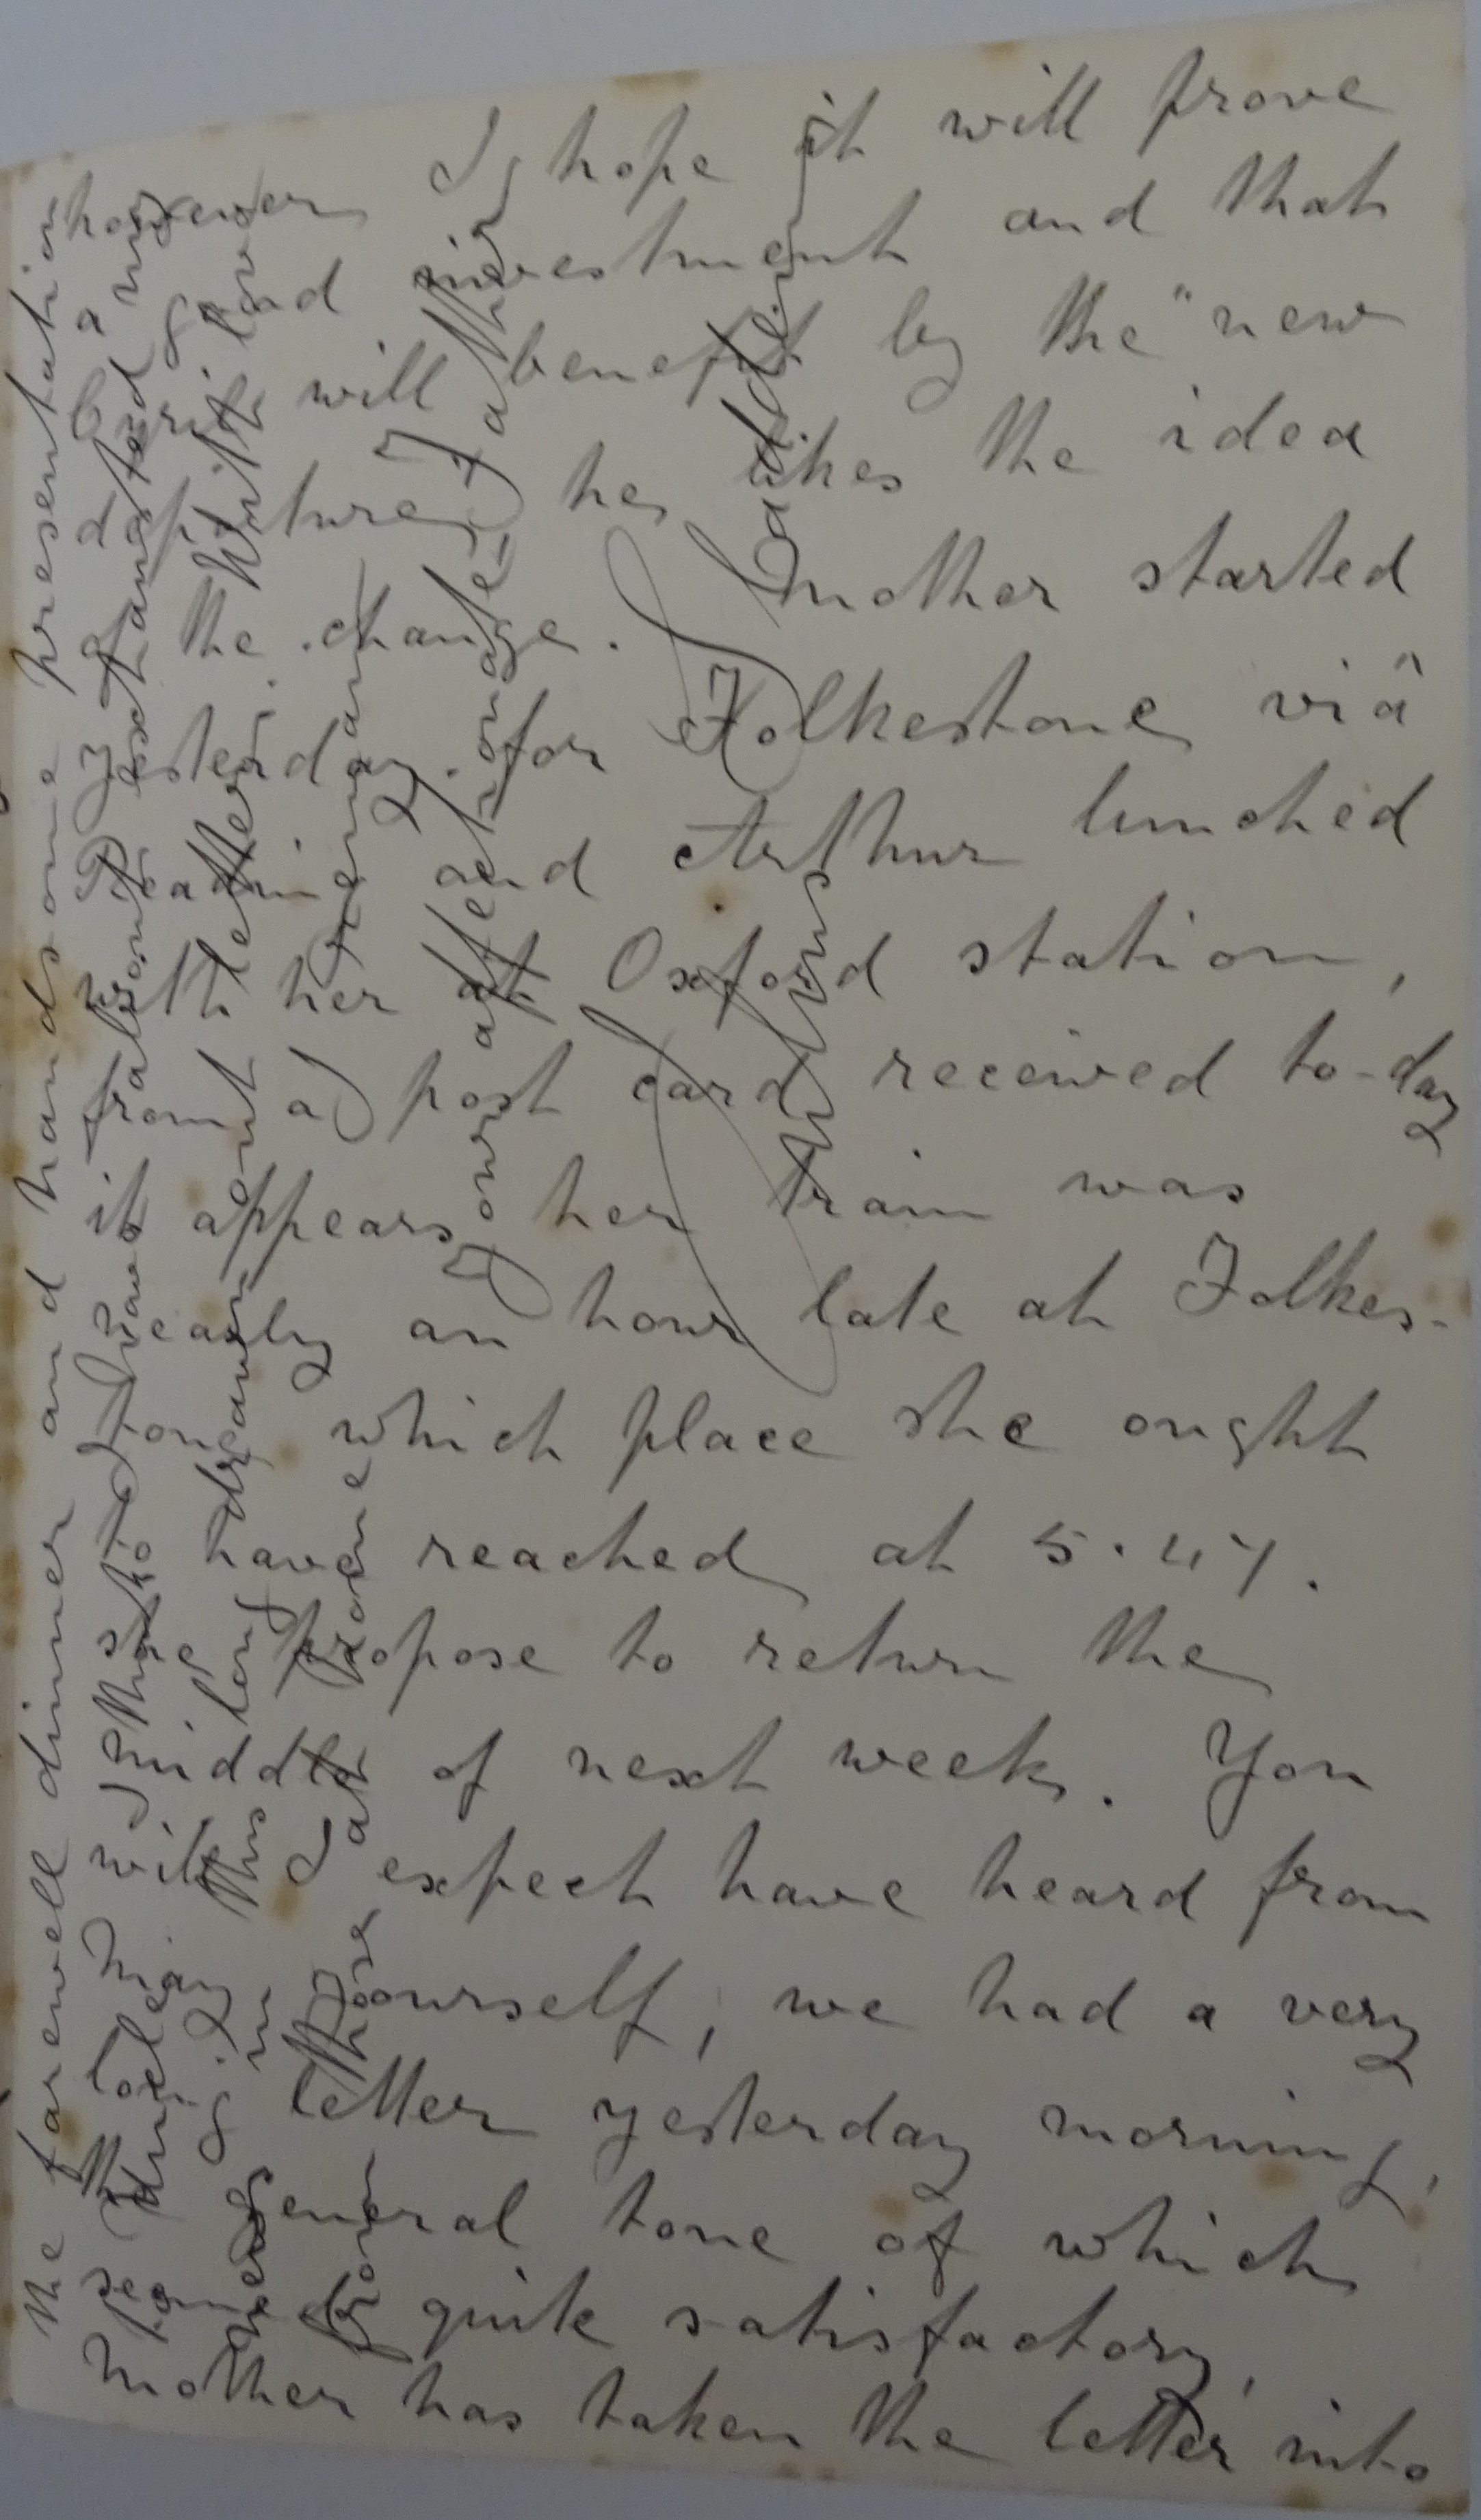 however I hope it will prove
a good investment and that
Cyril will benefit by the "new
departure", he likes the idea
of the change. Mother started
yesterday for Folkestone viâ
Reading and Arthur lunched
with her at Oxford station,
from a post card received to-day
it appears her train was
nearly an hour late at Folkes-
tone which place she ought
to have reached at 5.47.
she propose to return the
middle of next week. You
will I expect have heard from
May yourself, we had a very
long letter yesterday morning,
the general tone of which
seemed quite satisfactory,
Mother has taken the letter into
the farewell dinner and handsome presentation
I think I have almost exhausted my
this long drawn out letter. With love
from at home
your affectionate Father
Arthur